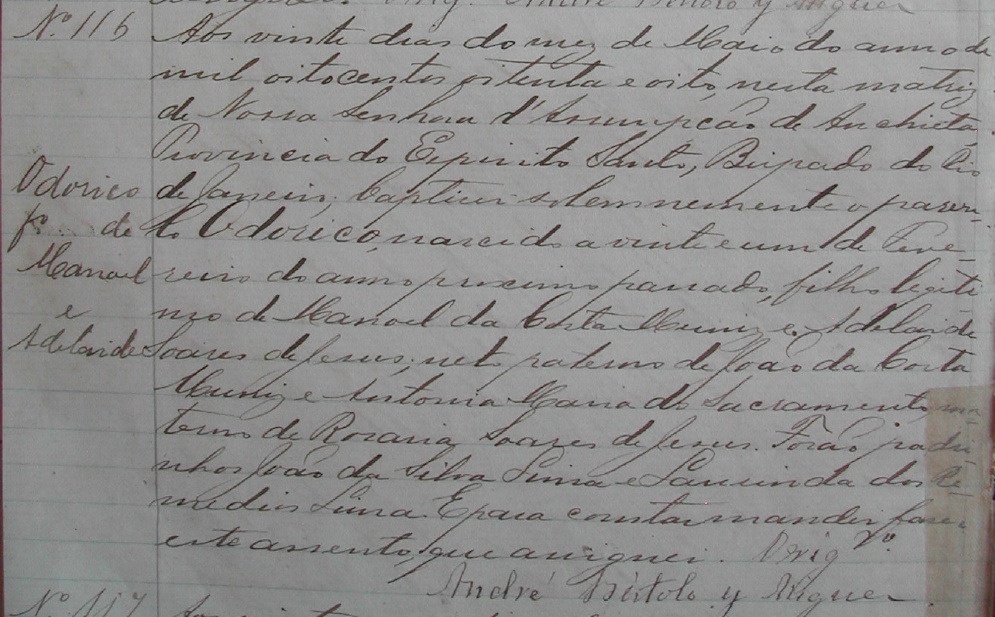 André Bertolo y Niguer
Nº 116
Aos vinte dias do mez de Maio do anno de
mil oitocentos oitenta e oito, nesta matriz
de Nossa Senhora d'Assumpcão de Anchieta,
Provincia do Espirito Santo, Bispado do Rio
de Janeiro, baptizei solemnemente o parvu-
lo Odorico, nascido a vinte e um de Feve-
reiro do anno proximo passado, filho legiti
mo de Manoel da Costa Muniz e Adelaide
Soares de Jesus; neto paterno de João da Costa
Muniz e Antonia Maria do Sacramento, ma-
terno de Rosaria Soares de Jesus. Forão padri-
nhos João da Silva Lima e Laurinda dos Re-
medios Lima. E para constar mandei fazer
este assento, que assignei. O Vigrº
André Bertolo y Niguer
Odorico
fº de
Manoel
e
Adelaide
Nº 117